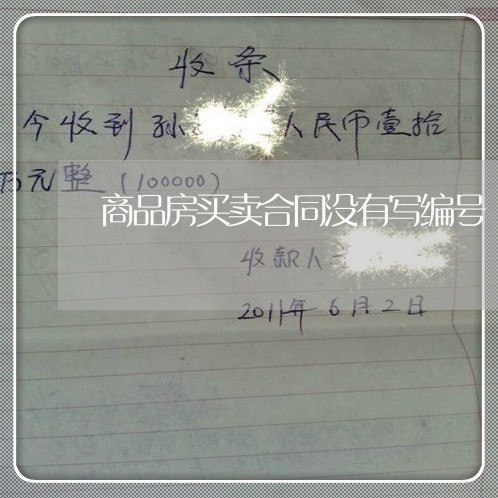 收条
今收到孙 人民币壹拾
万元整(100000)
商品房买卖合同没有写编号
收款人
2011年6月2日